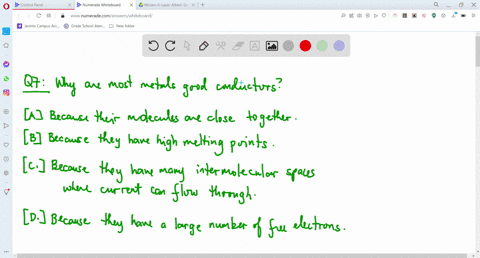 Control Panel
Numerade Whiteboard
www.numerade.com/answers/whiteboard/
Q7: Why are most metals good conductors?
[A] Because their molecules are close together.
[B] Because they have high melting points.
[C.] Because they have many intermolecular spaces
where current can flow through.
[D.] Because they have a large number of free electrons.